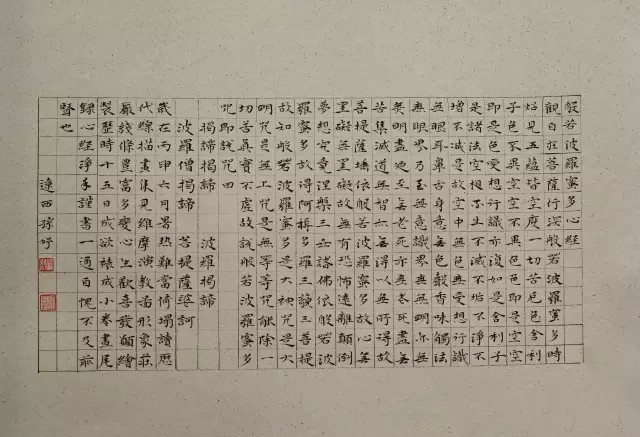 般若波羅蜜多心經
觀自在菩薩行深般若波羅蜜多時
炤見五蘊皆空度一切苦厄舍利
子色不異空空不異色色即是空空
即是色受想行識亦復如是舍利子
是諸法空相不生不滅不垢不淨不
增不減是故空中無色無受想行識
無眼耳鼻舌身意無色聲香味觸法
無眼界乃至無意識界無無明亦無
無明盡乃至無老死亦無老死盡無
苦集滅道無智亦無得以無所得故
菩提薩埵依般若波羅蜜多故心無
罣礙無罣礙故無有恐怖遠離顛倒
夢想究竟涅槃三世諸佛依般若波
羅蜜多故得阿耨多羅三藐三菩提
故知般若波羅蜜多是大神咒是大
明咒是無上咒是無等等咒能除一
切苦真實不虛故說般若波羅蜜多
咒即說咒曰
揭諦揭諦 波羅揭諦
波羅僧揭諦 菩提薩婆訶
歲在丙申六月暑熱難當倚榻讀歷
代線描畫集見維摩演教圖形象莊
嚴線條豐富多變心生歡喜發願繪
製歷時十五日成欲裱成小卷畫尾
錄心經淨手謹書一通自愧不及前
賢也
遼西孫